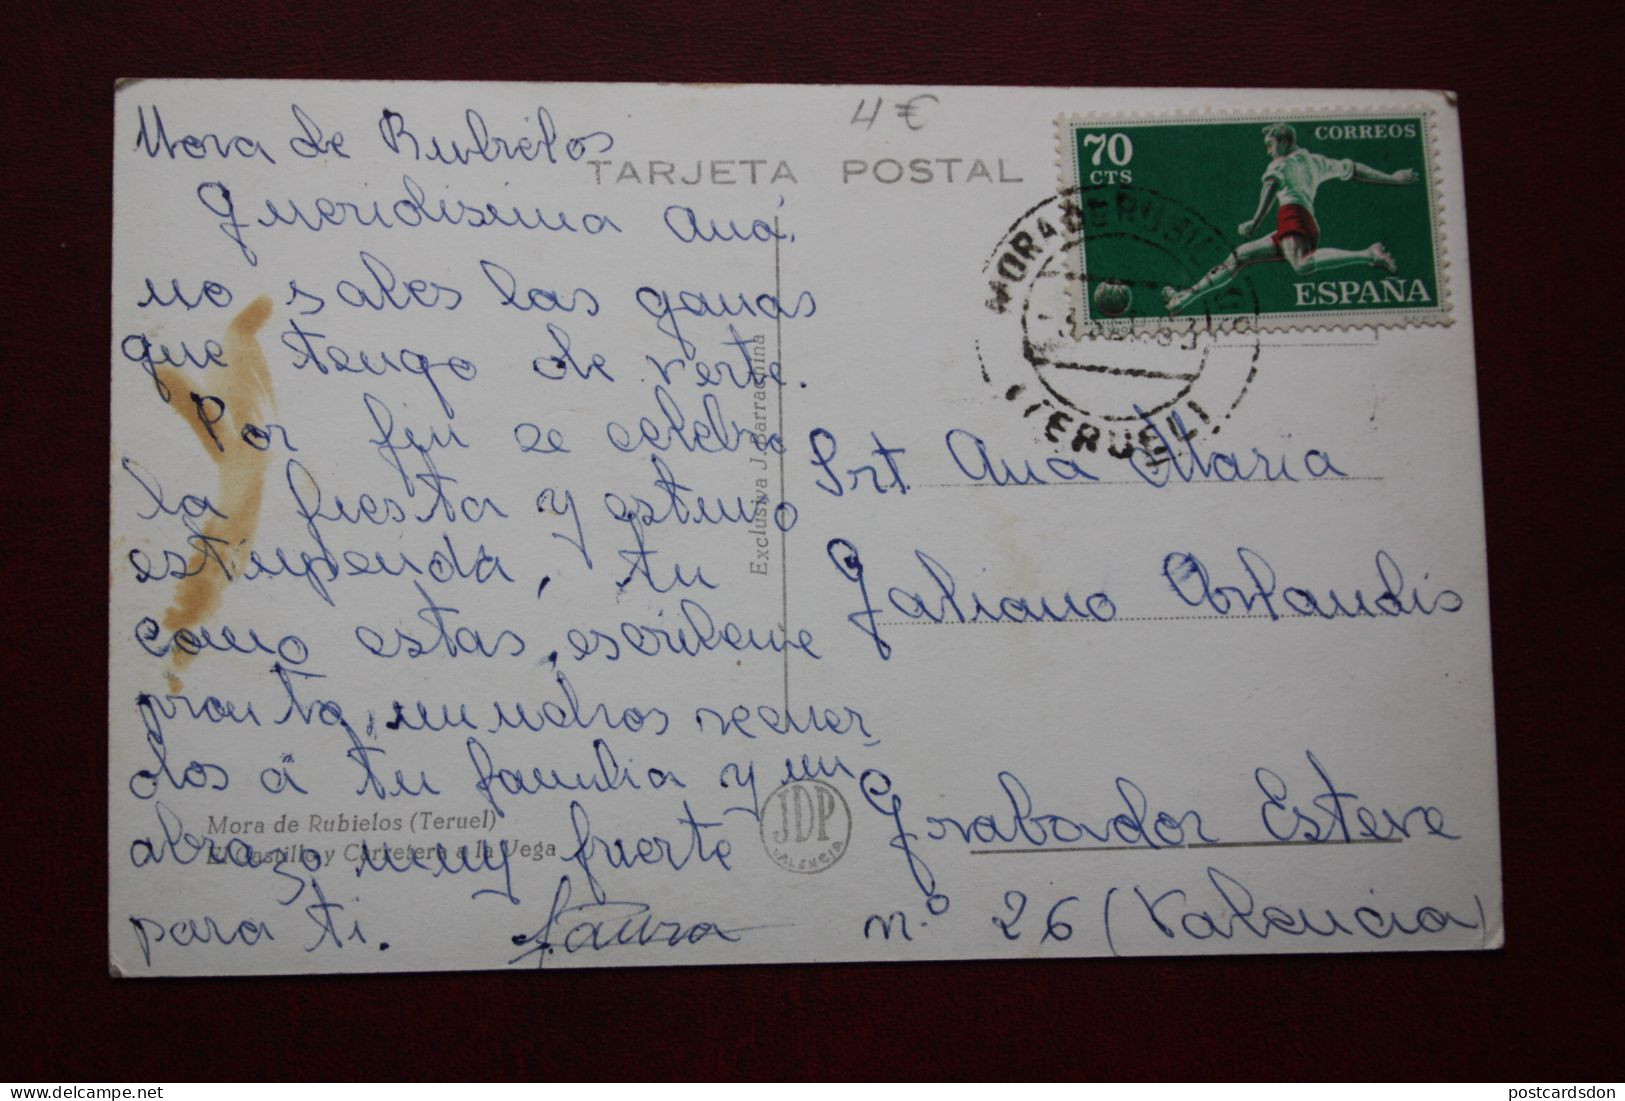 4 €
TARJETA POSTAL
Mora de Rubielos
Queridisima Ana:
no sabes las ganas
que tengo de verte.
Por fin se celebro
la fiesta y estuvo
estupenda, tu
como estas, escribeme
pronto, muchos recuer
dos a tu familia y un
abrazo muy fuerte
para ti. Laura
Mora de Rubielos (Teruel)
El Castillo y Carretera a la Vega
Exclusiva J. Barrachina
JDP
VALENCIA
70
CTS
CORREOS
ESPAÑA
MORA DE RUBIELOS
(TERUEL)
Srt Ana Maria
Galiano Orlandis
Grabador Esteve
nº 26 (Valencia)
postcardsdon